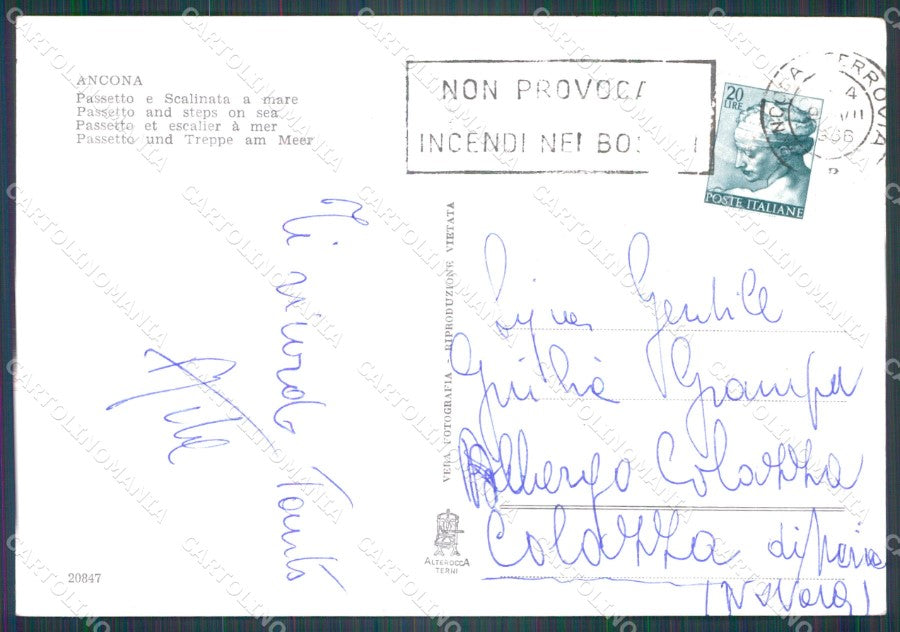 ANCONA
Passetto e Scalinata a mare
Passetto and steps on sea
Passetto et escalier à mer
Passetto und Treppe am Meer
NON PROVOCA
INCENDI NEI BOS I
20
LIRE
POSTE ITALIANE
ANCONA FERROVIA
VERA FOTOGRAFIA - RIPRODUZIONE VIETATA
Ti ricordo tanto
Gentile
Giulia Grampa
Albergo Colazza
Colazza di
(Novara)
ALTEROCCA
TERNI
20847
CARTOLINOMANIA